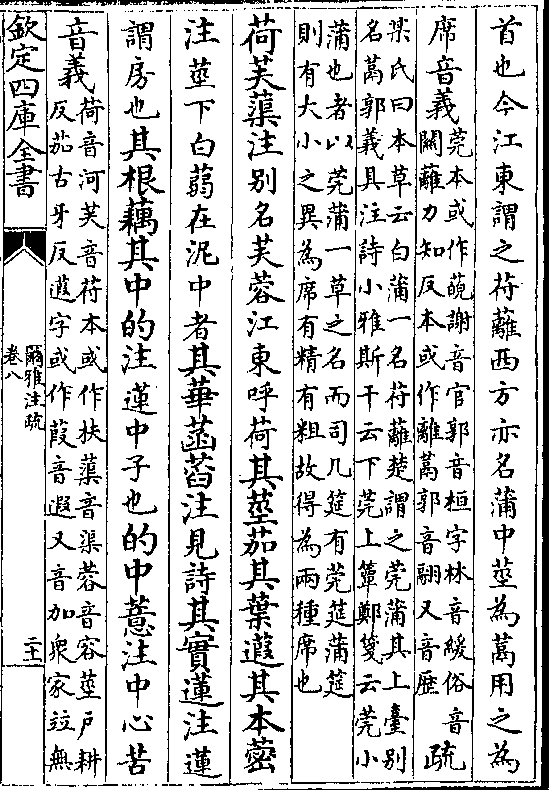 首也今江東謂之苻蘺西方亦名蒲中莖為蒚用之為
席音義
莞本或作莧謝音官郭音桓字林音緩俗音
關蘺力知反本或作離蒚郭音翮又音歷
疏
某氏曰本草云白蒲一名苻蘺楚謂之莞蒲其上臺别
名蒚郭義具注詩小雅斯干云下莞上簟鄭箋云莞小
蒲也者以莞蒲一草之名而司几筵有莞筵蒲筵
則有大小之異為席有精有粗故得為兩種席也
荷芙蕖注别名芙蓉江東呼荷其莖茄其葉蕸其本蔤
注莖下白蒻在泥中者其華菡萏注見詩其實蓮注蓮
謂房也其根藕其中的注蓮中子也的中薏注中心苦
音義
荷音河芙音苻本或作扶蕖音渠蓉音容莖戸耕
反茄古牙反蕸字或作葭音遐又音加衆家竝無
欽定四庫全書
爾雅注疏
卷八
二十